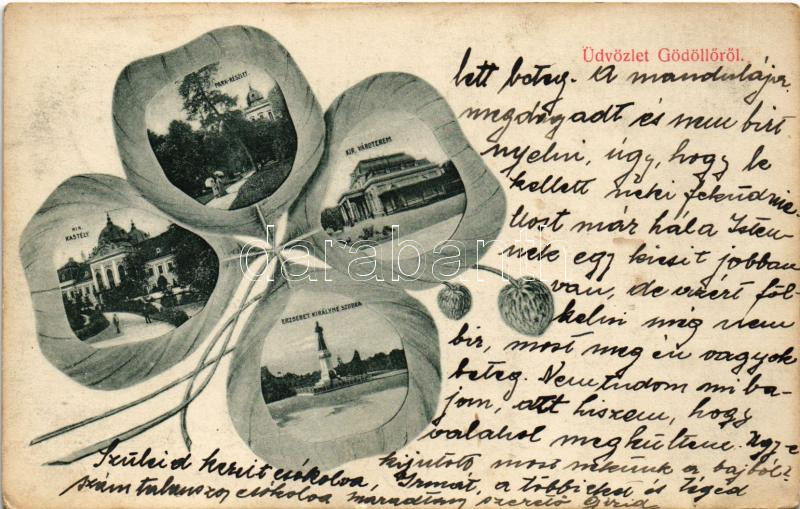 Üdvözlet Gödöllőről.
PARK-RÉSZLET
KIR. VÁROTEREM
KIR. KASTÉLY
ERZSÉBET KIRÁLYNÉ SZOBRA
lett beteg. A mandulája
megdagadt és nem birt
nyelni, úgy, hogy le
kellett neki feküdnie
Most már hála Isten-
nek egy kicsit jobban
van, de azért föl-
kelni még nem
bir, most meg én vagyok
beteg. Nem tudom mi ba-
jom, azt hiszem, hogy
valahol meghültem. Ugy-e
kijutott most nekünk a bajból?
Szüleid kezeit csókolva, Irmát, a többieket és téged
számtalanszor csókolva maradtam szerető Gizid
darabanth.com